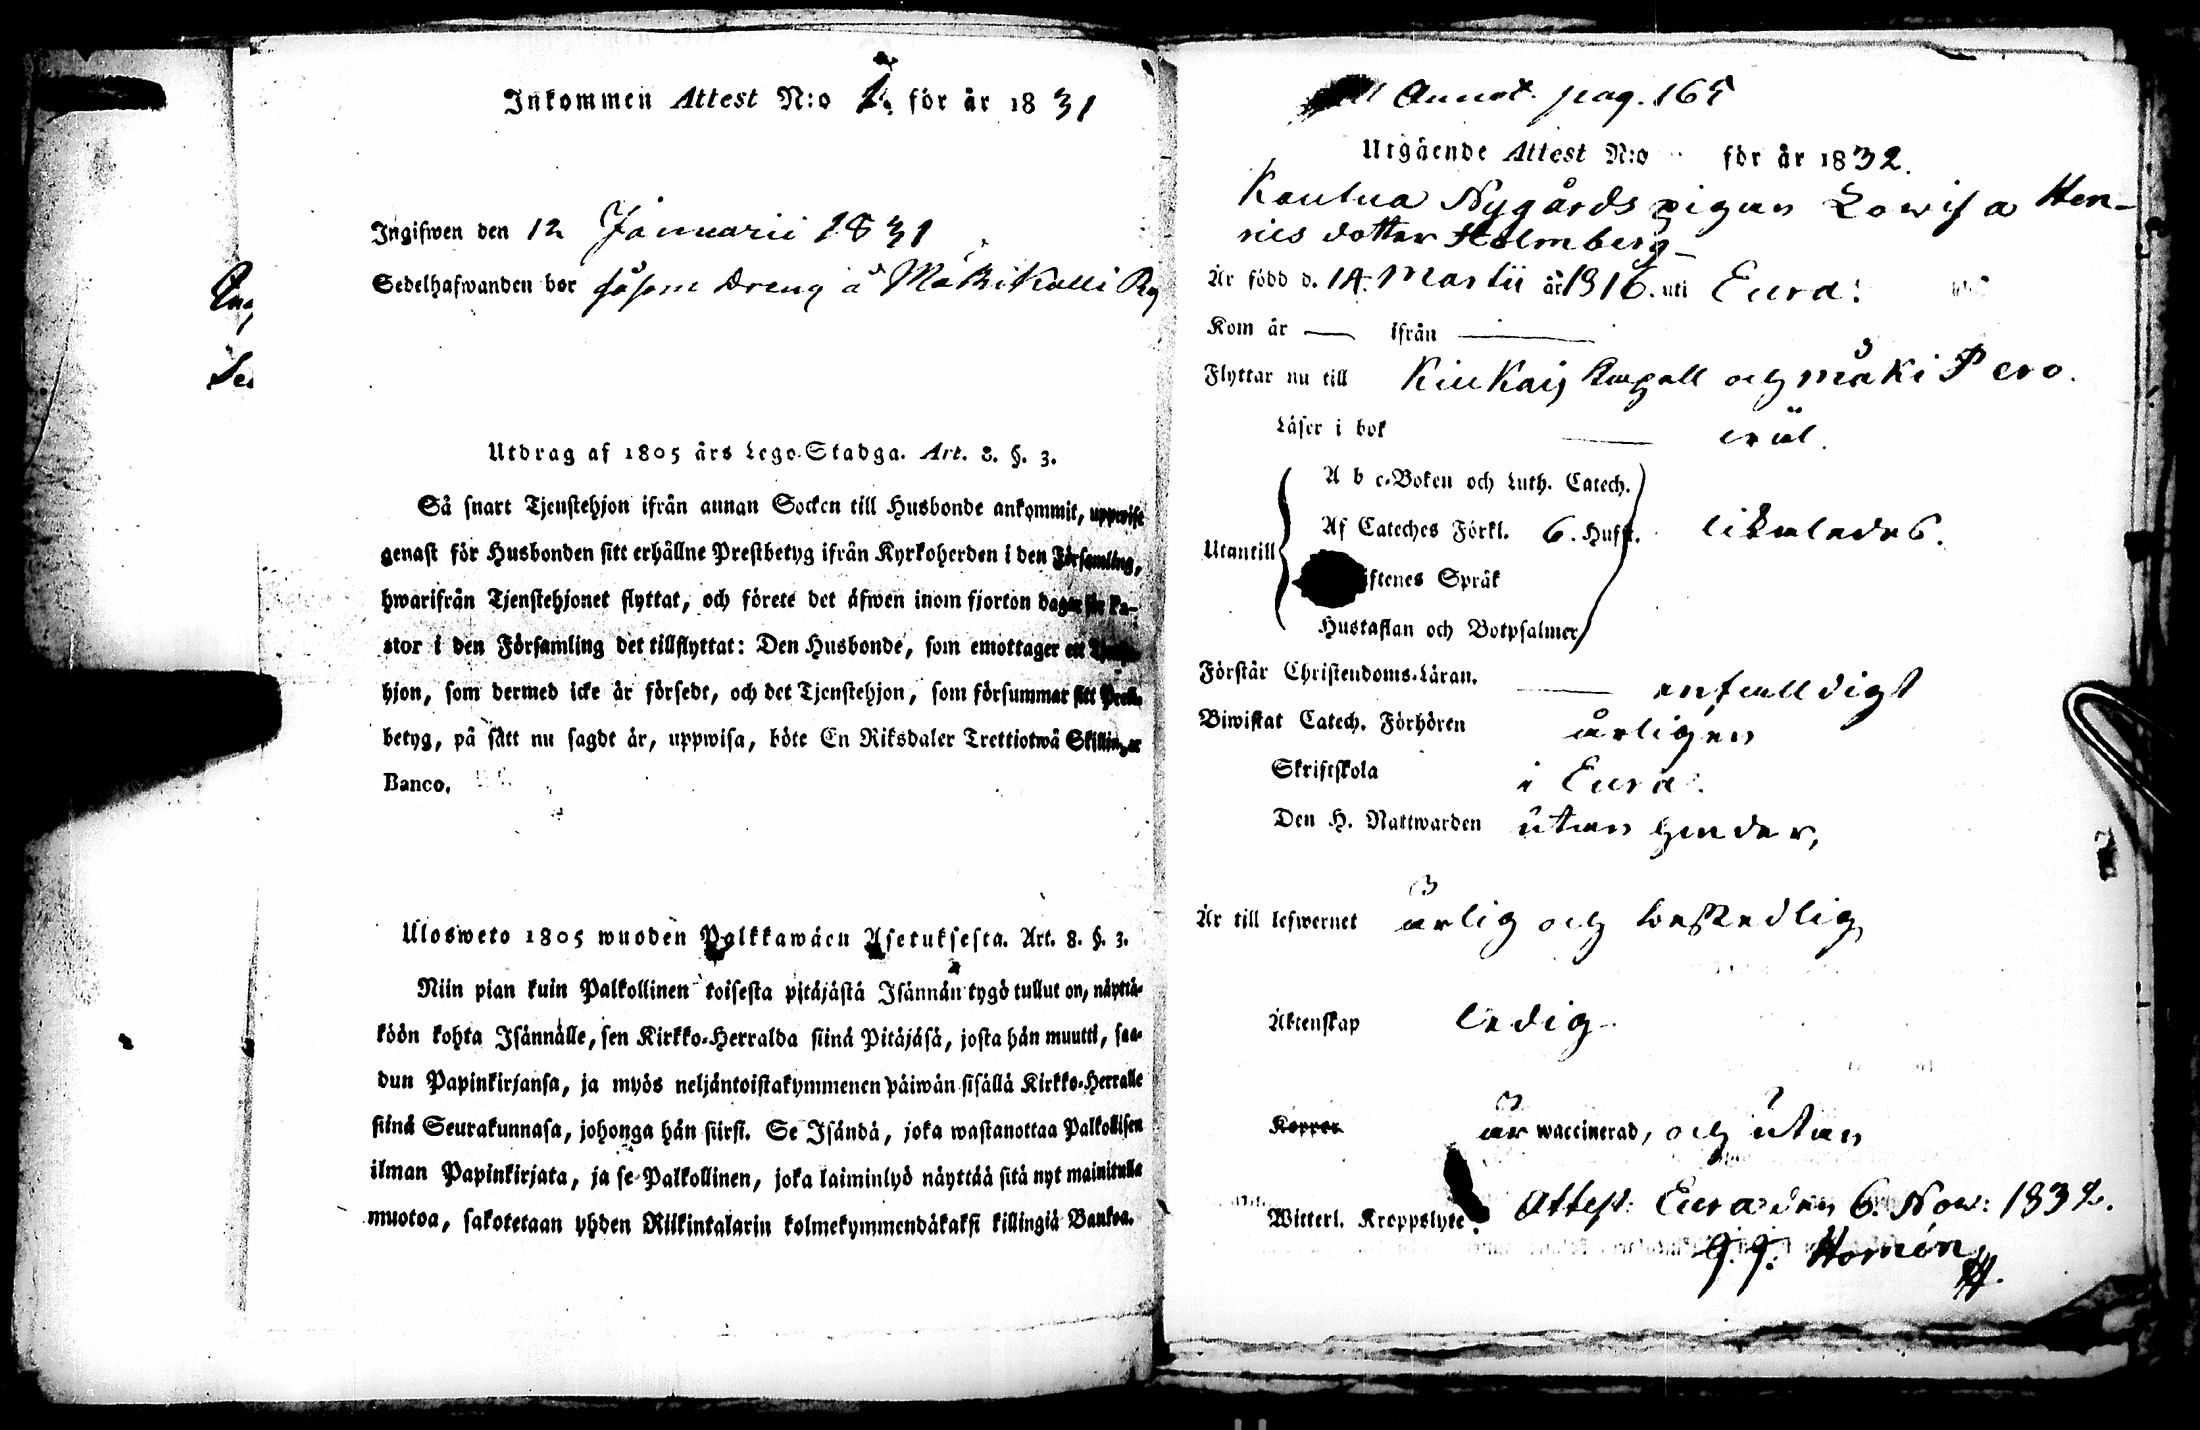 Inkommen Attest N:o 1. för år 1831
Ingifwen den 12 Januarii 1831
Sedelhafwanden bor såsom dreng å
Utdrag af 1805 års Lego-Stadga. Art. 8. §. 3.
Så snart Tjenstehjon ifrån annan Socken till Husbonde ankommit, uppwise
genast för Husbonden sitt erhållne Prestbetyg ifrån Kyrkoherden i den Församling,
hwarifrån Tjenstehjonet flyttat, och förete det äfwen inom fjorton dagar för Pa-
stor i den Församling det tillflyttat: Den Husbonde, som emottager ett
hjon, som dermed icke är försedt, och det Tjenstehjon, som försummar sitt Prest-
betyg, på sätt nu sagdt är, uppwisa, böte En Riksdaler Trettiotwå Skillingar
Banco.
Ulosweto 1805 wuoden Palkkawäen Asetuksesta. Art. 8. §. 3.
Niin pian kuin Palkollinen toisesta pitäjästä Isännän tygö tullut on, näyttä-
köön kohta Isännälle, sen Kirkko-Herralda siinä Pitäjäsä, josta hän muutti, saa-
dun Papinkirjansa, ja myös neljäntoistakymmenen päiwän sisällä Kirkko-Herralle
siinä Seurakunnasa, johonga hän siirsi. Se Isändä, joka wastanottaa Palkollisen
ilman Papinkirjata, ja se Palkollinen, joka laiminlyö näyttää sitä nyt mainitulla
muotoa, sakotetaan yhden Riikintalarin kolmekymmendäkaksi killingiä Bankoa.
Annot. pag. 165
Utgående Attest N:o för år 1832.
Kautua Nygårds pigan Lowisa Hen-
rics dotter Holmberg
Är född d. 14. Martii år 1816. uti Eura:
Kom år — ifrån —
Flyttar nu till Kiukais Capell och Mäki Pero.
Läser i bok — wäl.
A b c-Boken och Luth. Catech.
Af Cateches Förkl. 6. Hufst. likaledes.
Utantill
Språk
Hustaflan och Botpsalmer
Förstår Christendoms-Läran. — enfalldigt
Biwistat Catech. Förhören årligen
Skriftskola i Eura.
Den H. Nattwarden utan hinder,
Är till lefwernet ärlig och beskedlig,
Äktenskap ledig.
Koppor är waccinerad, och utan
Witterl. Kroppslyte. Attest: Eura den 6. Nov: 1832.